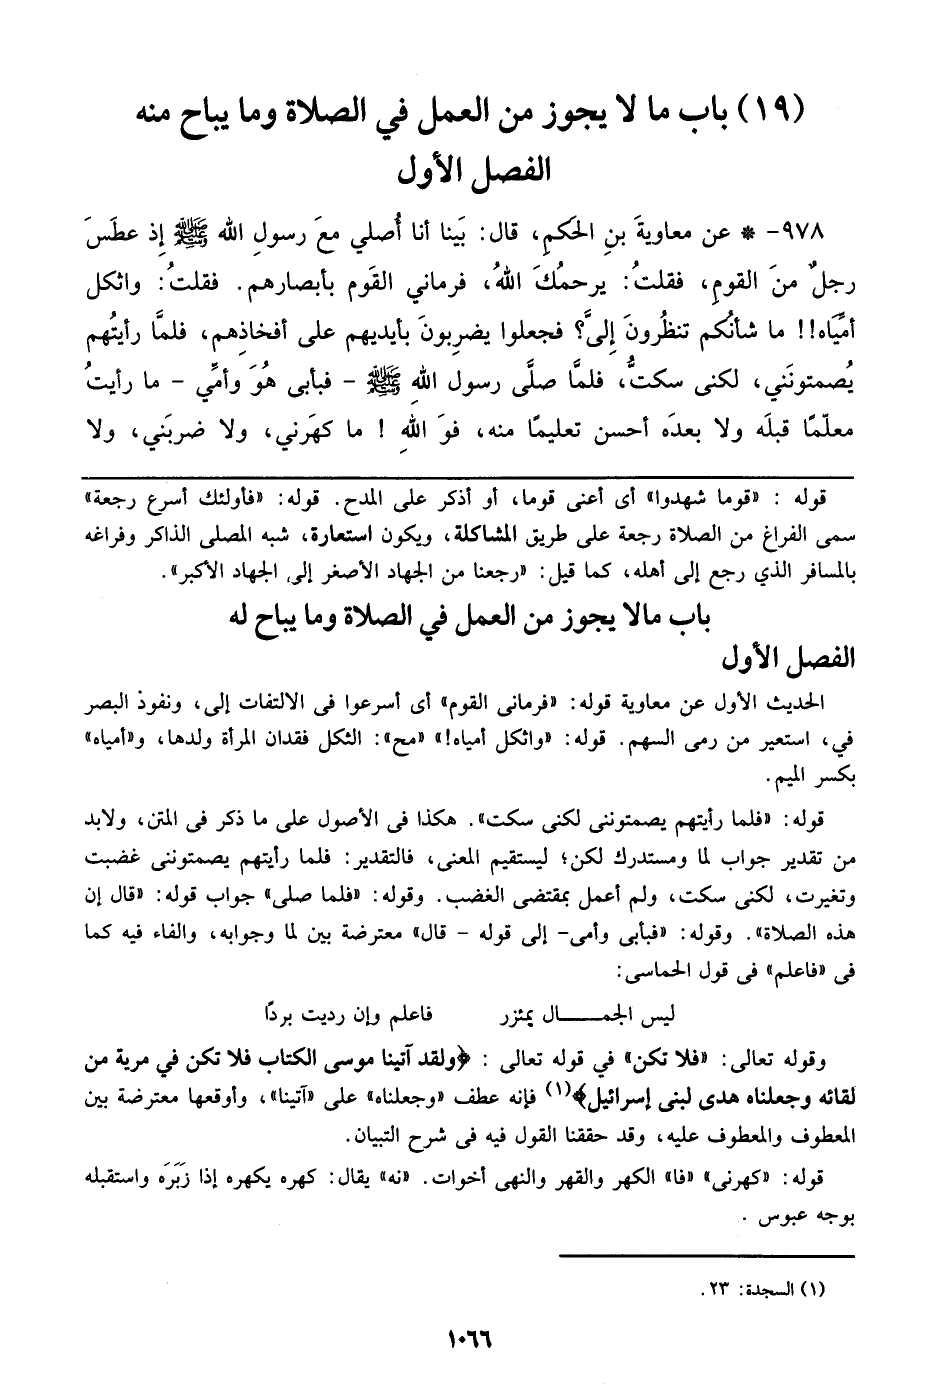 (١٩) باب ما لا يجوز من العمل في الصلاة وما يباح منه
الفصل الأول
٩٧٨- * عن معاويةَ بنِ الحَكمِ، قال: بَينا أنا أُصلي معَ رسولِ الله ﷺ إذِ عطَسَ
رجلٌ منَ القومِ، فقلتُ: يرحمُكَ اللهُ، فرماني القَوم بأبصارهم. فقلتُ: واثكل
أميَّاه!! ما شأنُكم تنظُرونَ إلىَّ؟ فجعلوا يضرِبونَ بأيديهم على أفخاذِهم، فلمَّا رأيتُهم
يُصمتونَني، لكنى سكتُّ، فلمَّا صلَّى رسول اللهِ ﷺ - فبأبى هُوَ وأمِّي - ما رأيتُ
معلّمًا قبلَه ولا بعدَه أحسن تعليمًا منه، فوَ اللهِ ! ما كهَرني، ولا ضربَني، ولا
قوله : «قوما شهدوا» أى أعنى قوما، أو أذكر على المدح. قوله: «فأولئك أسرع رجعة»
سمى الفراغ من الصلاة رجعة على طريق المشاكلة، ويكون استعارة، شبه المصلى الذاكر وفراغه
بالمسافر الذي رجع إلى أهله، كما قيل: «رجعنا من الجهاد الأصغر إلى الجهاد الأكبر».
باب مالا يجوز من العمل في الصلاة وما يباح له
الفصل الأول
الحديث الأول عن معاوية قوله: «فرمانى القوم» أى أسرعوا فى الالتفات إلى، ونفوذ البصر
في، استعير من رمى السهم. قوله: «واثكل أمياه!» «مح»: الثكل فقدان المرأة ولدها، و«أمياه»
بكسر الميم.
قوله: «فلما رأيتهم يصمتوننى لكنى سكت». هكذا فى الأصول على ما ذكر فى المتن، ولابد
من تقدير جواب لما ومستدرك لكن؛ ليستقيم المعنى، فالتقدير: فلما رأيتهم يصمتوننى غضبت
وتغيرت، لكنى سكت، ولم أعمل بمقتضى الغضب. وقوله: «فلما صلى» جواب قوله: «قال إن
هذه الصلاة». وقوله: «فبأبى وأمى- إلى قوله - قال» معترضة بين لما وجوابه، والفاء فيه كما
فى «فاعلم» فى قول الحماسى:
ليس الجمـــــال بمئزر فاعلم وإن رديت بردًا
وقوله تعالى: «فلا تكن» في قوله تعالى : ﴿ولقد آتينا موسى الكتاب فلا تكن في مرية من
لقائه وجعلناه هدى لبنى إسرائيل﴾(١) فإنه عطف «وجعلناه» على «آتينا»، وأوقعها معترضة بين
المعطوف والمعطوف عليه، وقد حققنا القول فيه فى شرح التبيان.
قوله: «كهرنى» «فا» الكهر والقهر والنهى أخوات. «نه» يقال: كهره يكهره إذا زَبَرَه واستقبله
بوجه عبوس .
(١) السجدة: ٢٣.
١٠٦٦